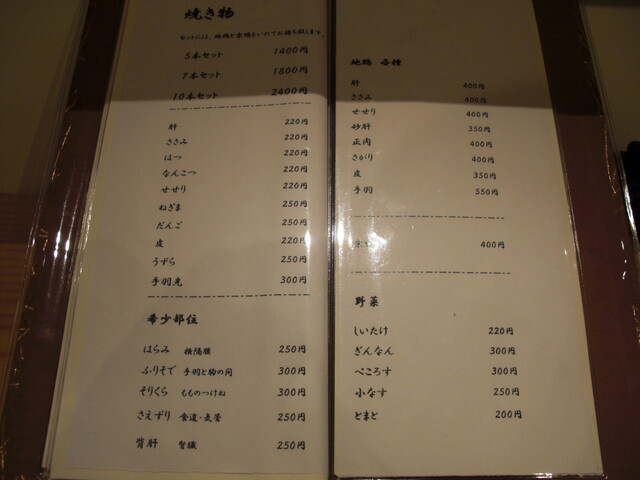 焼き物
セットには、地鶏と
5本セット 1400円
7本セット 1800円
10本セット 2400円
肝 220円
ささみ 220円
はつ 220円
なんこつ 220円
せせり 220円
ねぎま 250円
だんご 250円
皮 220円
うずら 250円
手羽先 300円
希少部位
はらみ 横隔膜 250円
ふりそで 手羽と胸の間 300円
そりくら もものつけね 300円
さえずり 食道・気管 250円
背肝 腎臓 250円
地鶏 各種
肝 400円
ささみ 400円
せせり 400円
砂肝 350円
正肉 400円
さがり 400円
皮 350円
手羽 550円
400円
野菜
しいたけ 220円
ぎんなん 300円
ぺころす 300円
小なす 250円
とまと 200円